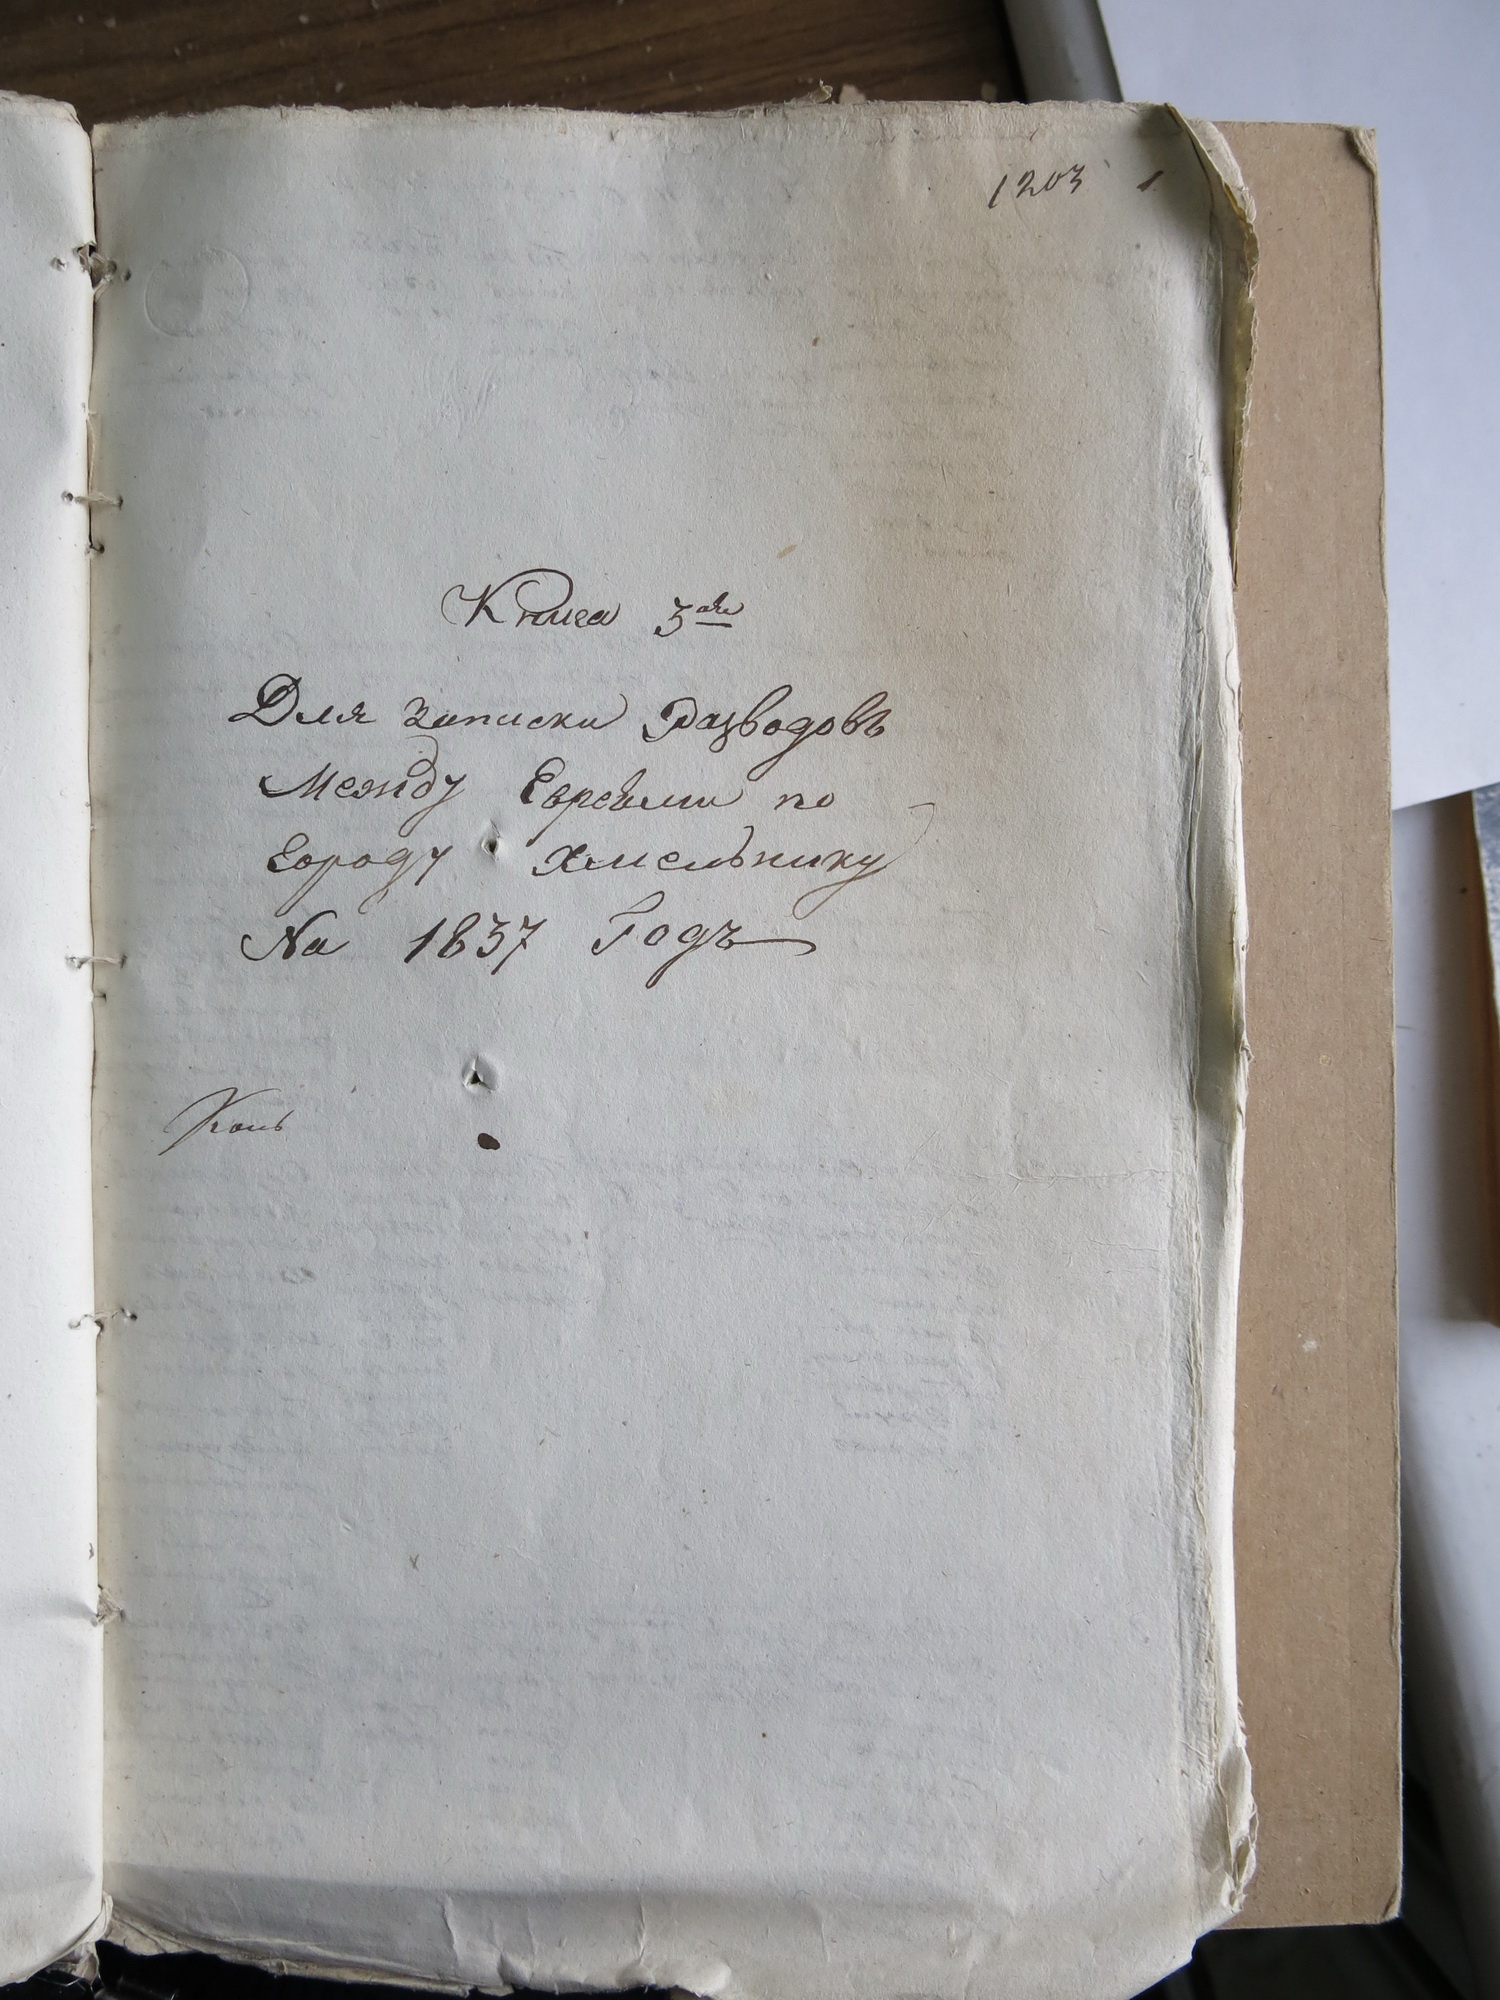 1203 1
Книга 3ая
Для записки Разводовъ
Между Евреями по
Городу Хмельнику
На 1837 Годъ